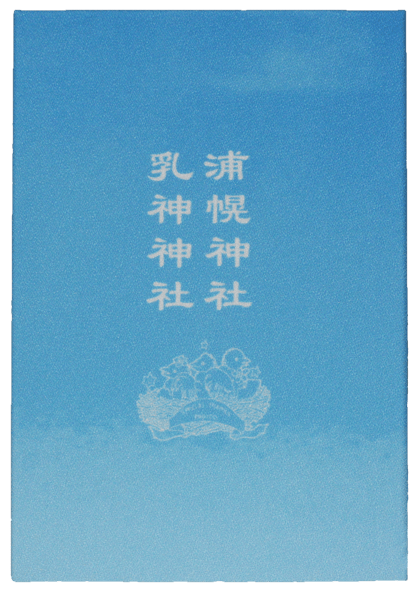 浦幌神社
乳神神社